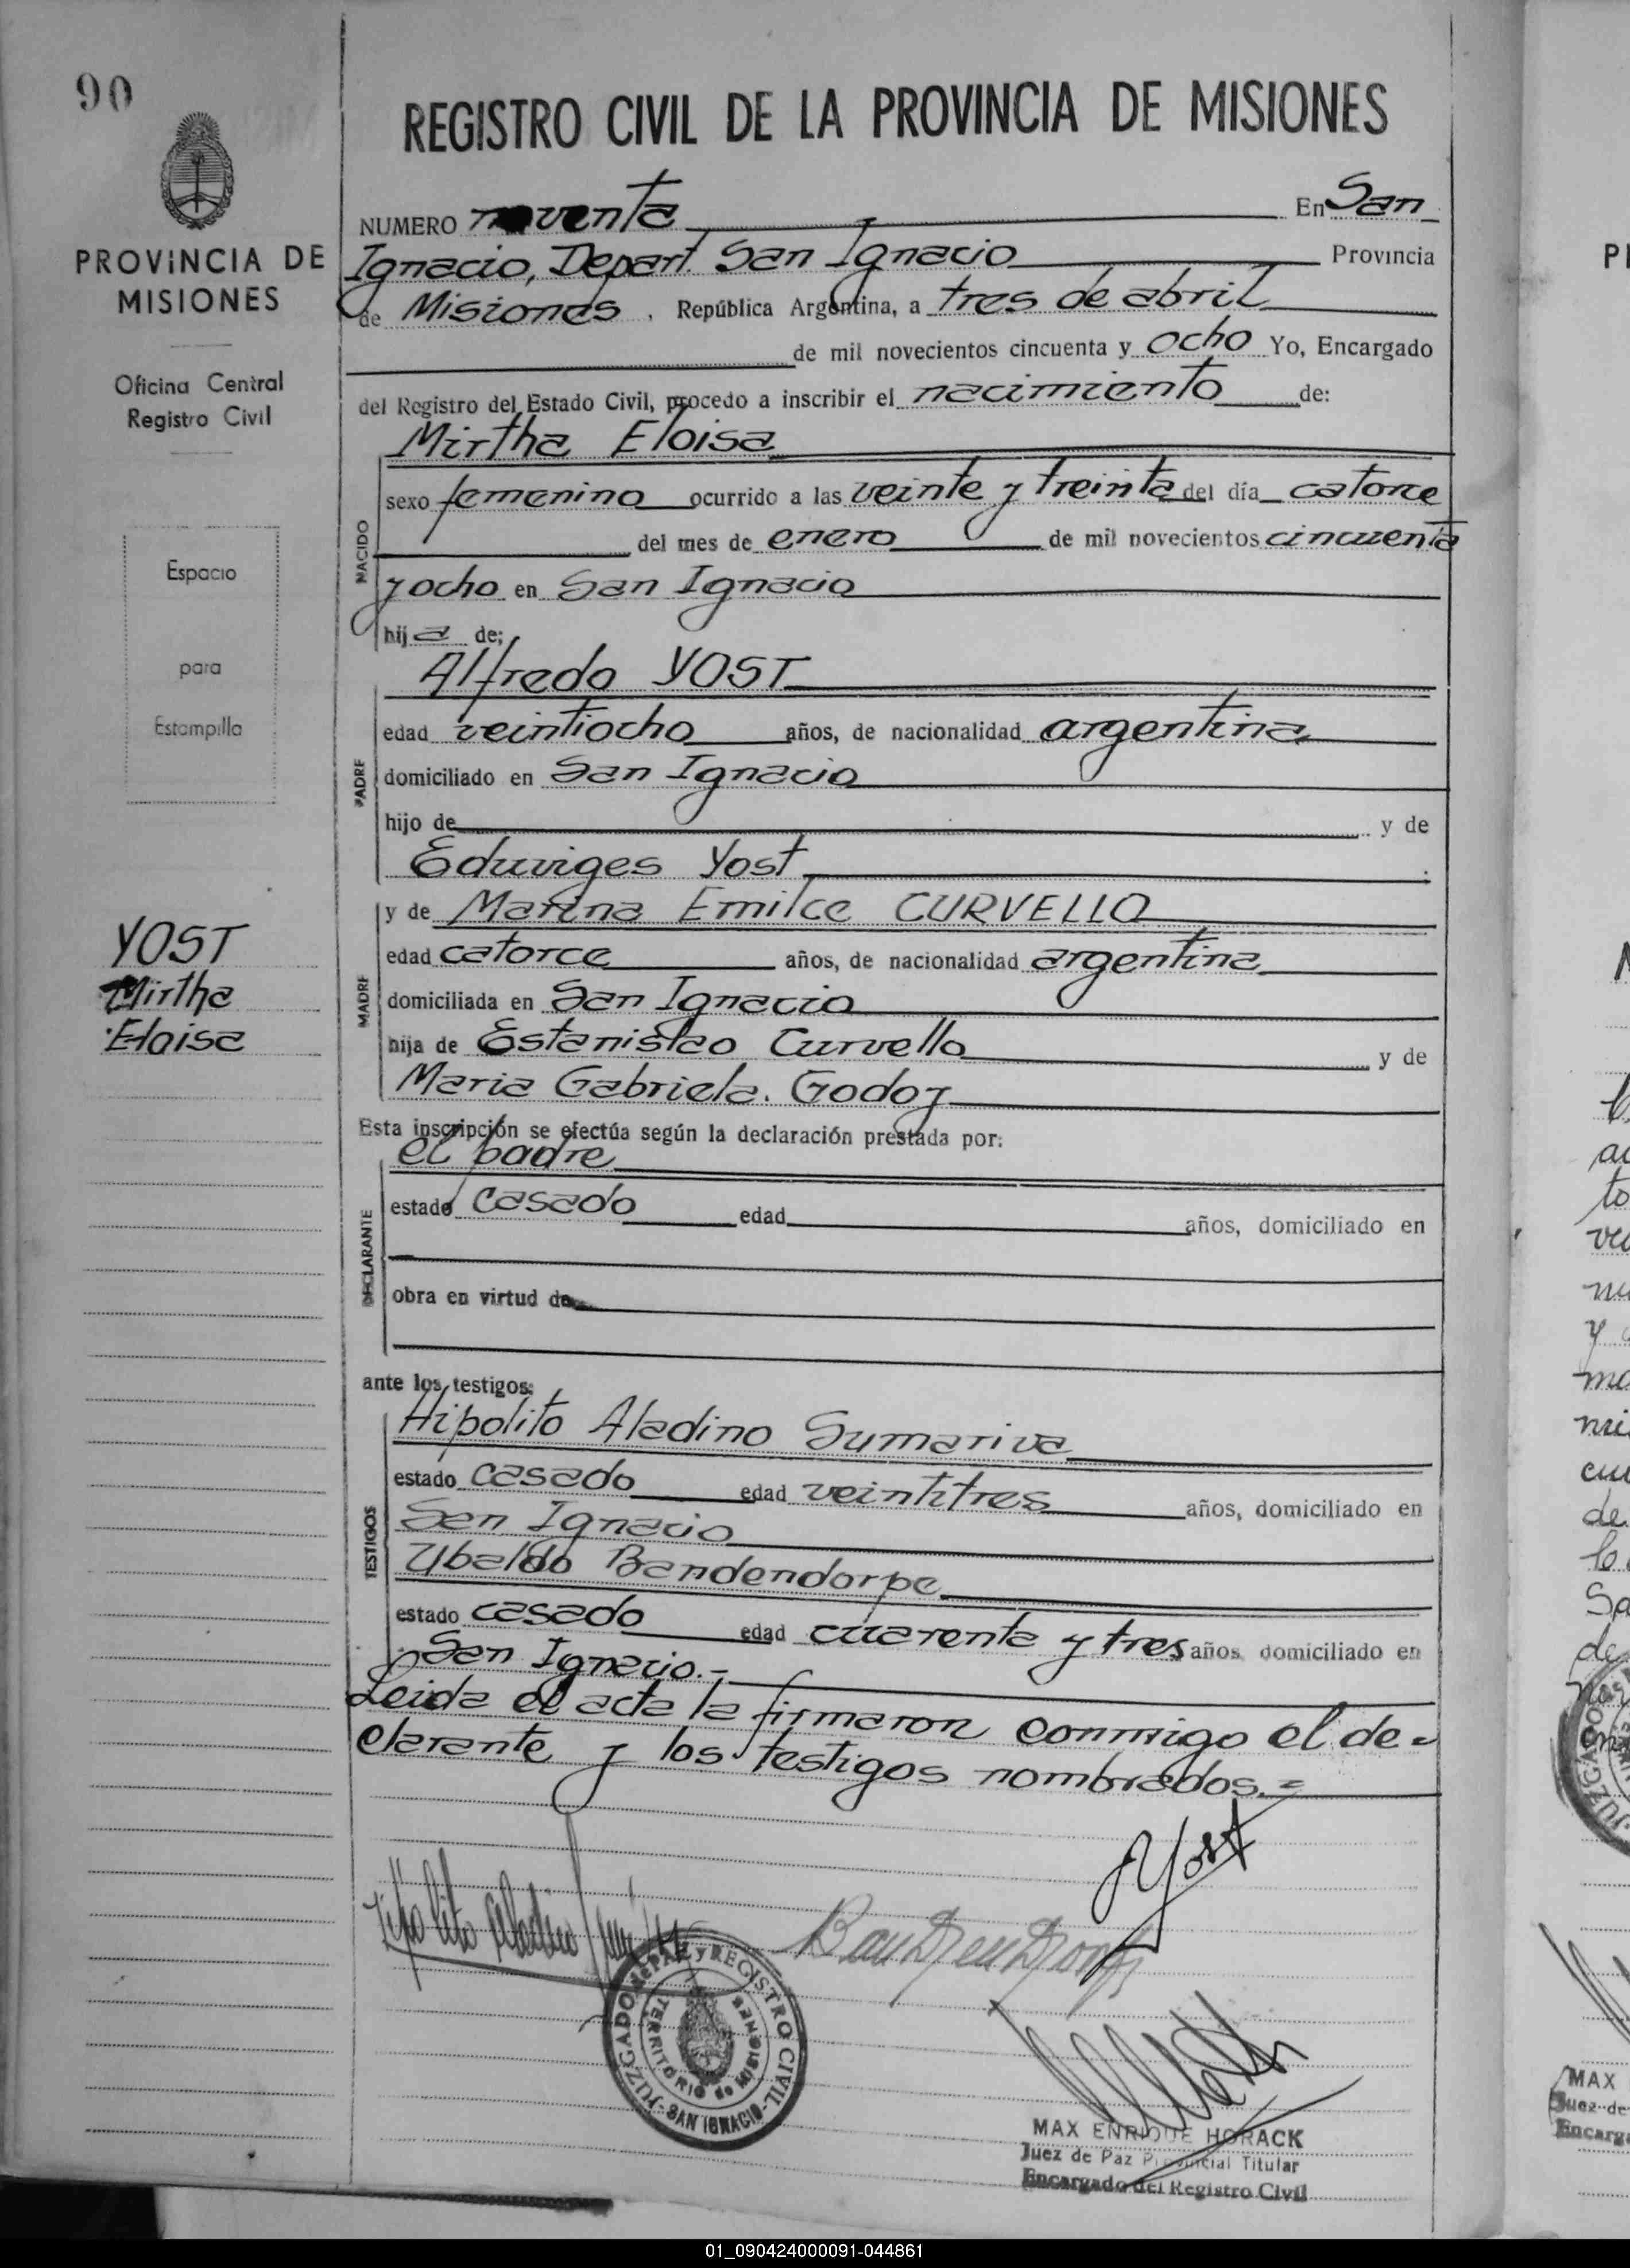 90
PROVINCIA DE
MISIONES
Oficina Central
Registro Civil
Espacio
para
Estampilla
YOST
Mirtha
Eloisa
REGISTRO CIVIL DE LA PROVINCIA DE MISIONES
NUMERO noventa En San
Ignacio, Depart. San Ignacio Provincia
de Misiones, República Argentina, a tres de abril
de mil novecientos cincuenta y ocho Yo, Encargado
del Registro del Estado Civil, procedo a inscribir el nacimiento de:
NACIDO
Mirtha Eloisa
sexo femenino ocurrido a las veinte y treinta del día catorce
del mes de enero de mil novecientos cincuenta
y ocho en San Ignacio
hija de:
PADRE
Alfredo YOST
edad veintiocho años, de nacionalidad argentina
domiciliado en San Ignacio
hijo de y de
Eduviges Yost
MADRE
y de Marina Emilce CURVELLO
edad catorce años, de nacionalidad argentina
domiciliada en San Ignacio
hija de Estanislao Curvello y de
Maria Gabriela. Godoy
Esta inscripción se efectúa según la declaración prestada por:
DECLARANTE
el padre
estado casado edad años, domiciliado en
obra en virtud de
ante los testigos:
TESTIGOS
Hipolito Aladino Sumariva
estado casado edad veintitres años, domiciliado en
San Ignacio
Ubaldo Bandendorpe
estado casado edad cuarenta y tres años, domiciliado en
San Ignacio.-
Leida el acta la firmaron conmigo el de-
clarante y los testigos nombrados.=
Yost
Hipolito Aladino
JUZGADO DE PAZ y REGISTRO CIVIL
TERRITORIO de MISIONES
-SAN IGNACIO-
MAX ENRIQUE HORACK
Juez de Paz Provincial Titular
Encargado del Registro Civil
MAX
Juez de
Encarg
01_090424000091-044861